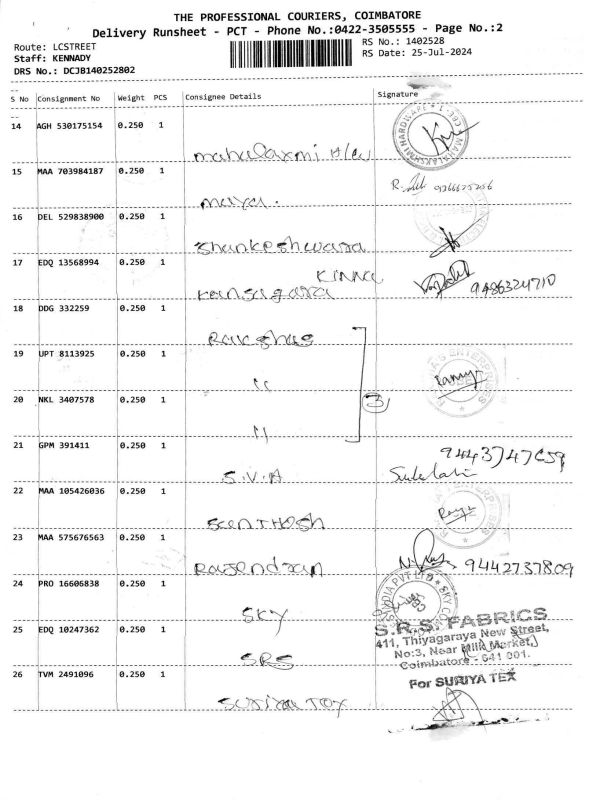 THE PROFESSIONAL COURIERS, COIMBATORE
Delivery Runsheet - PCT - Phone No.:0422-3505555 - Page No.:2
Route: LCSTREET
RS No.: 1402528
Staff: KENNADY
RS Date: 25-Jul-2024
DRS No.: DCJB140252802
S No Consignment No Weight PCS Consignee Details Signature
14 AGH 530175154 0.250 1
mahalaxmi H/W
MAHALAKSHMI HARDWARE
15 MAA 703984187 0.250 1
maya.
16 DEL 529838900 0.250 1
Shankeshwara
17 EDQ 13568994 0.250 1
KINNA
Kansagara
9486324710
18 DDG 332259 0.250 1
Rakshas
19 UPT 8113925 0.250 1
"
ENTERPRISES
20 NKL 3407578 0.250 1
"
3
21 GPM 391411 0.250 1
S.V.A
22 MAA 105426036 0.250 1
SenTHosh
23 MAA 575676563 0.250 1
Rajendran
9442737809
24 PRO 16606838 0.250 1
SKY
INDIA PVT LTD
25 EDQ 10247362 0.250 1
SRS
S.R.S. FABRICS
411, Thiyagaraya New Street,
No:3, Near Milk Market,
Coimbatore - 641 001.
26 TVM 2491096 0.250 1
Suriya Tex
For SURIYA TEX